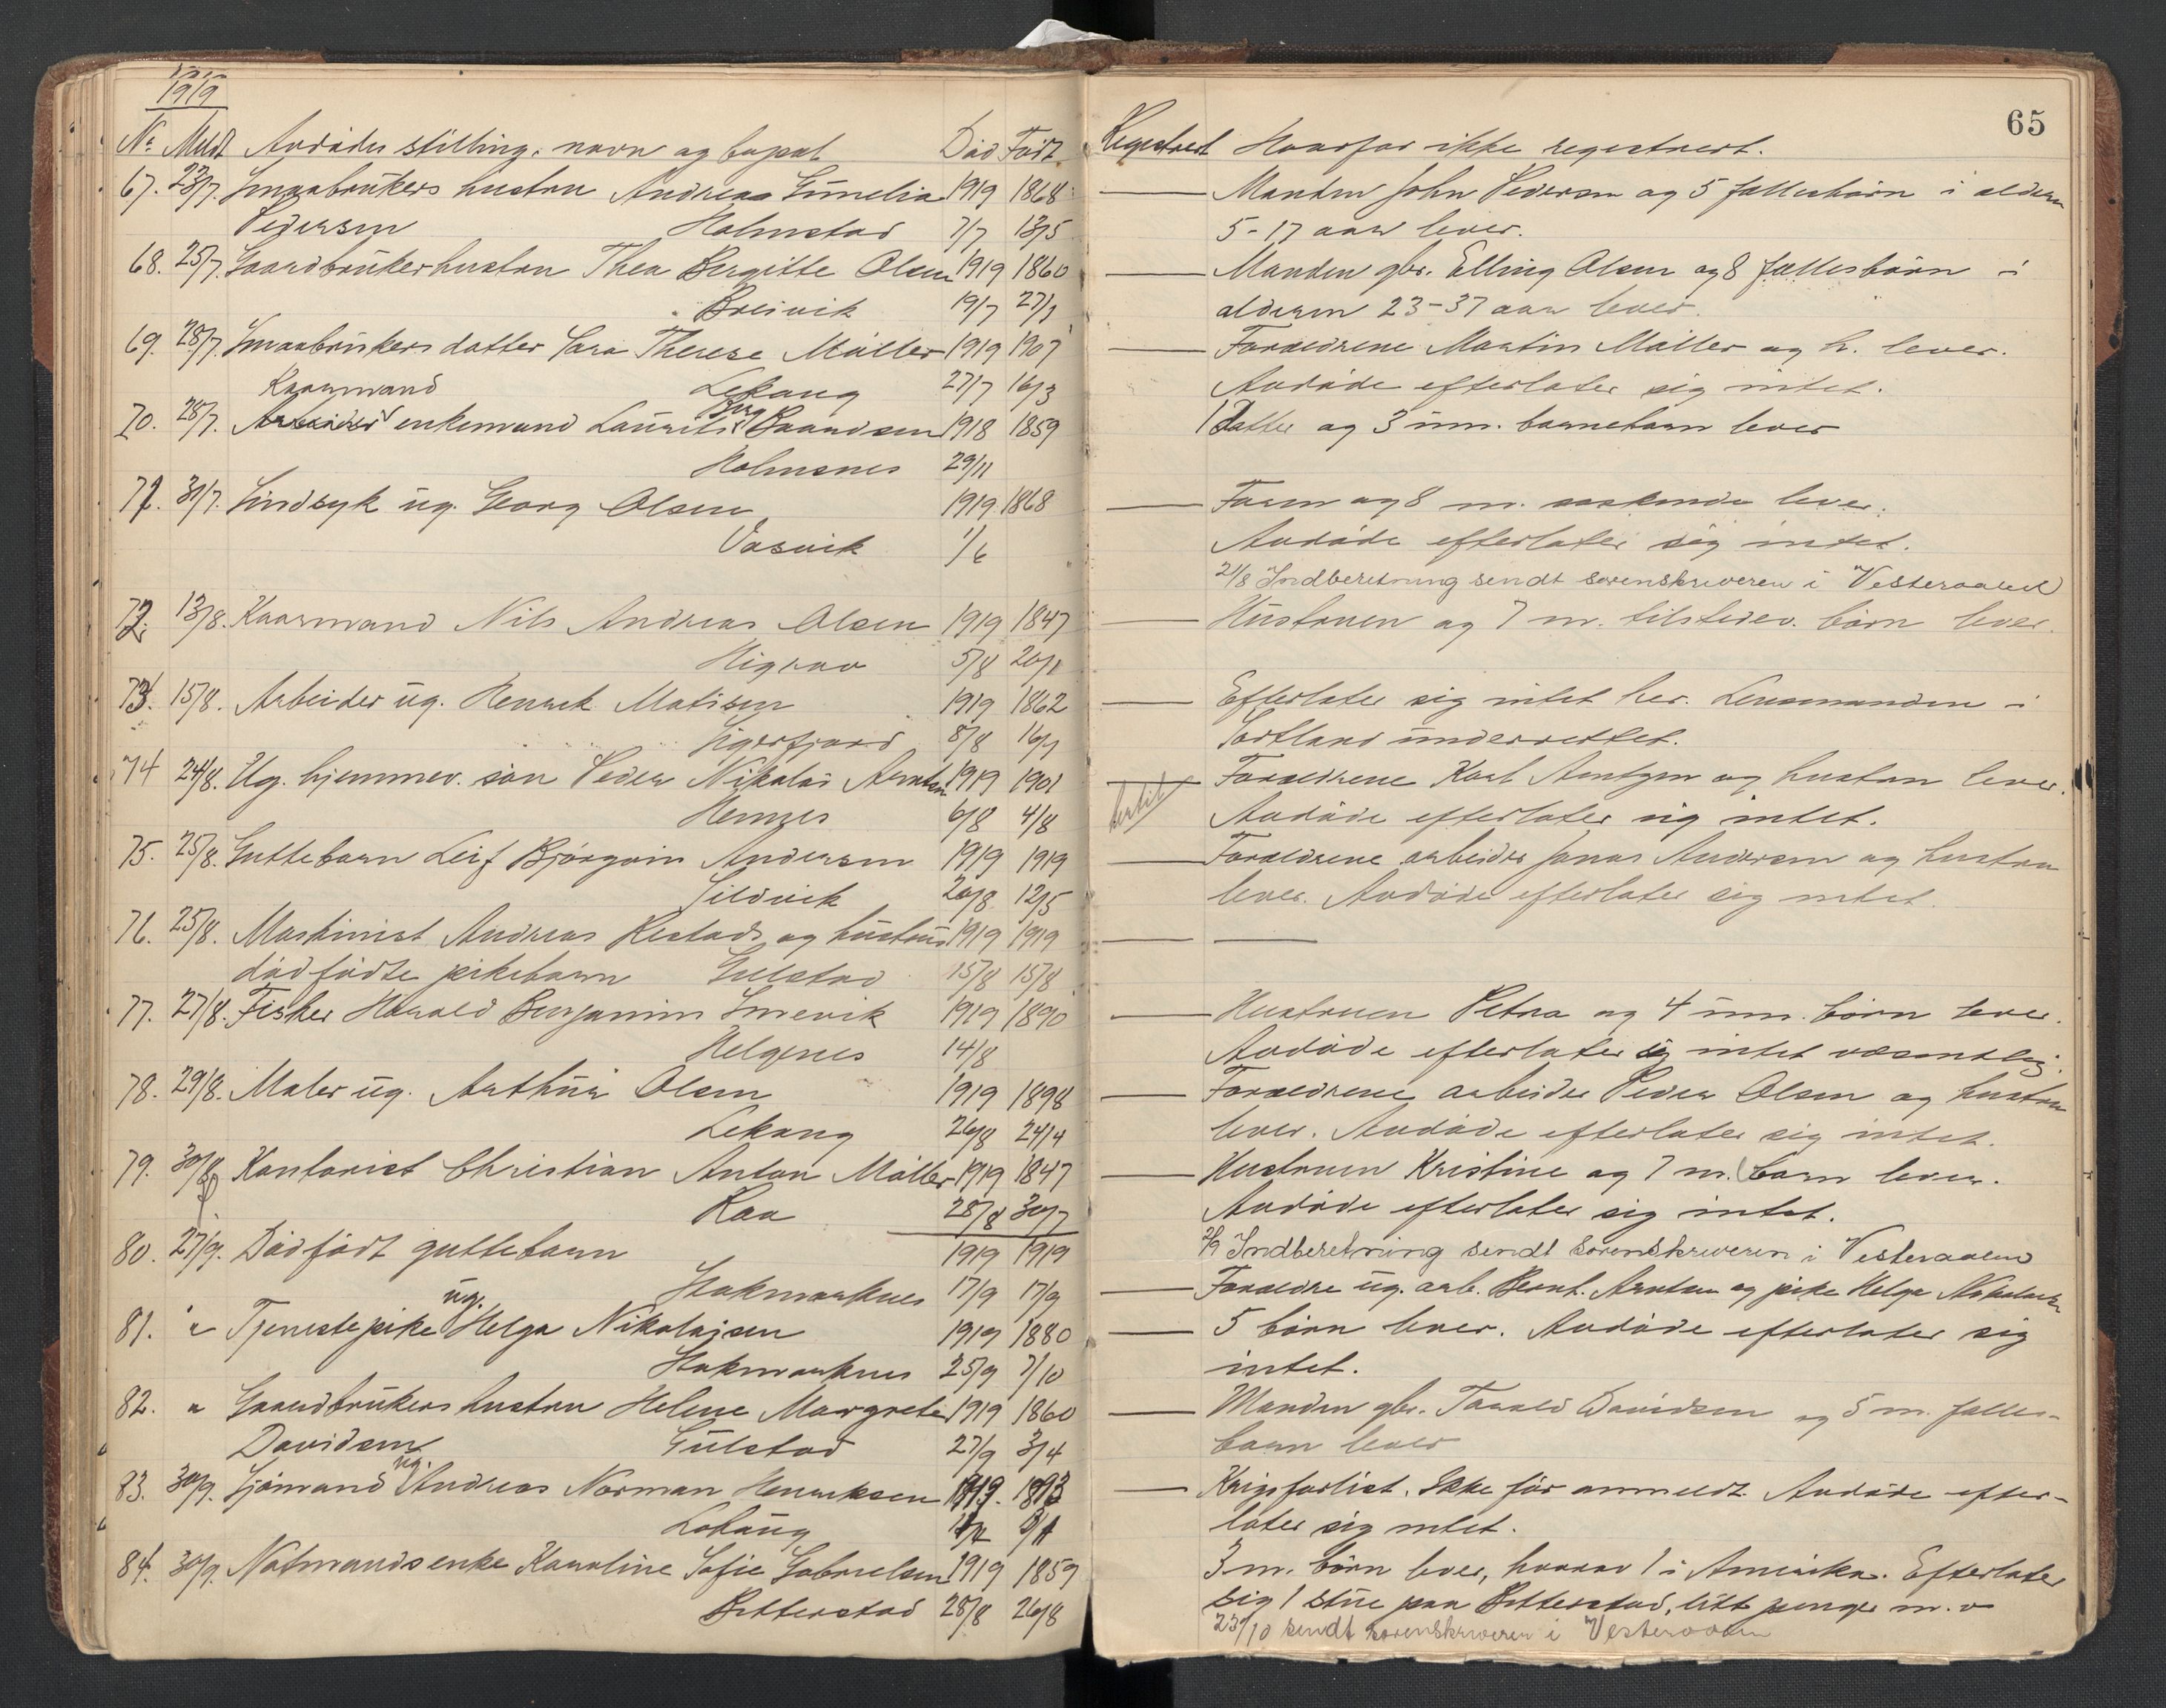 1919
65
No Meldt Avdödes stilling, navn og bopæl Död Födt
Registrert Hvorfor ikke registrert.
67. 23/7. Smaabrukers hustru Andrea Gunelia 1919 1868
Pedersen Holmstad 7/7 13/5
Manden John Pedersen og 5 fællesbörn i alderen
5-17 aar lever.
68. 25/7. Gaardbrukerhustru Thea Bergitte Olsen 1919 1860
Breivik 19/7 27/1
Manden gbr. Elling Olsen og 8 fællesbörn i
alderen 23-37 aar lever.
69. 28/7. Smaabrukers datter Sara Therese Möller 1919 1907
Lekang 27/7 16/3
Forældrene Martin Möller og h. lever.
Avdöde efterlater sig intet.
Kaarmand Berg
70. 28/7. Arbeider enkemand Laurits Baardsen 1918 1859
Holmsnes 29/11
1 datter og 3 um. barnebarn lever
71. 31/7. Sindsyk ug. Georg Olsen 1919 1868
Vasvik 1/6
Faren og 8 m. søskende lever.
Avdöde efterlater sig intet.
21/8 Indberetning sendt sorenskriveren i Vesteraalen
72. 13/8. Kaarmand Nils Andreas Olsen 1919 1847
Higrav 5/8 20/1
Hustruen og 7 m. tilstedev. börn lever.
73. 15/8. Arbeider ug. Henrik Matisen 1919 1862
Sigerfjord 8/8 16/7
Efterlater sig intet her. Lensmanden i
Sortland underrettet.
74 24/8. Ug. hjemmev. sön Peder Nikolai Arntsen 1919 1901
Hennes 6/8 4/8
Forældrene Karl Arntzen og hustru lever.
Avdöde efterlater sig intet.
75. 25/8. Guttebarn Leif Björgvin Andersen 1919 1919
Sildvik 20/8 12/5
Forældrene arbeider Jonas Andersen og hustru
lever. Avdöde efterlater sig intet.
76. 25/8. Maskinist Andreas Restads og hustrus 1919 1919
dödfödte pikebarn Gulstad 15/8 15/8
77. 27/8. Fisker Harald Benjamin Smevik 1919 1890
Helgenes 14/8
Hustruen Petra og 4 um. börn lever.
Avdöde efterlater sig intet væsentlig.
78. 29/8. Maler ug. Arthur Olsen 1919 1898
Lekang 26/8 24/4
Forældrene arbeider Peder Olsen og hustru
lever. Avdöde efterlater sig intet.
79. 30/8 Kontorist Christian Anton Möller 1919 1847
Raa 28/8 30/7
Hustruen Kristine og 7 m. barn lever.
Avdöde efterlater sig intet.
2/9 Indberetning sendt sorenskriveren i Vesteraalen
80. 27/9. Dödfödt guttebarn 1919 1919
Stokmarknes 17/9 17/9
Forældre ug. arb. Bernt Arntsen og pike Helga Nikolaisen
ug.
81. " Tjenestepike Helga Nikolaisen 1919 1880
Stokmarknes 25/9 7/10
5 börn lever. Avdöde efterlater sig
intet.
82. " Gaardbrukers hustru Helene Margrete 1919 1860
Davidsen Gulstad 27/9 3/4
Manden gbr. Tarald Davidsen og 5 m. fælles-
barn lever
ug.
83. 30/9. Sjömand Andreas Norman Henriksen
Krigsforlist. Ikke för anmeldt. Avdöde efter-
later sig intet.
84. 30/9. Notmands enke Karoline Sofie Gabrielsen 1919 1859
Bitterstad 28/8 26/8
3 m. börn lever, hvorav 1 i Amerika. Efterlater
sig 1 stue paa Bitterstad, litt penger m. v
23/10 sendt sorenskriveren i Vesteraalen